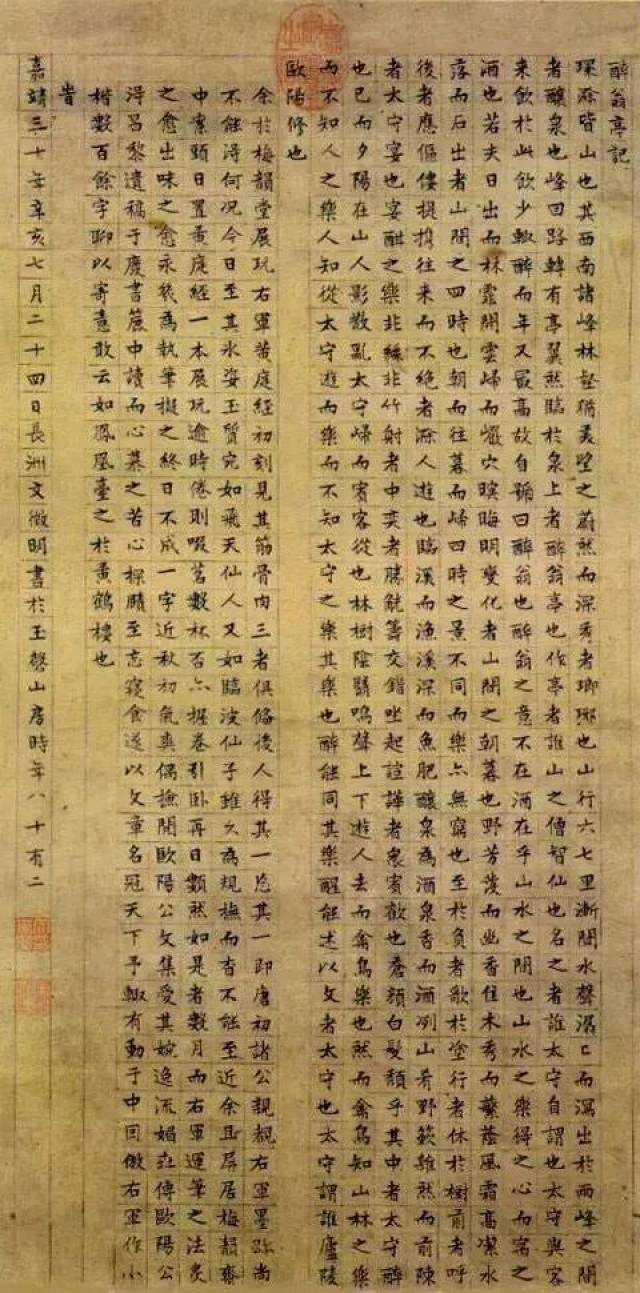 醉翁亭記
環滁皆山也其西南諸峰林壑猶美望之蔚然而深秀者瑯琊也山行六七里漸聞水聲潺〻而瀉出於兩峰之間
者釀泉也峰回路轉有亭翼然臨於泉上者醉翁亭也作亭者誰山之僧智仙也名之者誰太守自謂也太守與客
來飲於此飲少輒醉而年又最高故自號曰醉翁也醉翁之意不在酒在乎山水之間也山水之樂得之心而寓之
酒也若夫日出而林霏開雲歸而巖穴暝晦明變化者山間之朝暮也野芳發而幽香佳木秀而蘩蔭風霜高潔水
落而石出者山間之四時也朝而往暮而歸四時之景不同而樂亦無窮也至於負者歌於塗行者休於樹前者呼
後者應傴僂提攜往來而不絕者滁人遊也臨溪而漁溪深而魚肥釀泉為酒泉香而酒冽山肴野蔌雜然而前陳
者太守宴也宴酣之樂非絲非竹射者中奕者勝觥籌交錯坐起諠譁者眾賓歡也蒼顏白髮頹乎其中者太守醉
也已而夕陽在山人影散亂太守歸而賓客從也林樹陰翳鳴聲上下遊人去而禽鳥樂也然而禽鳥知山林之樂
而不知人之樂人知從太守遊而樂而不知太守之樂其樂也醉能同其樂醒能述以文者太守也太守謂誰廬陵
歐陽修也
余於梅韻堂展玩右軍黃庭經初刻見其筋骨肉三者俱備後人得其一忘其一即唐初諸公親覩右軍墨跡尚
不能得何況今日至其冰姿玉質宛如飛天仙人又如臨波仙子雖久為規橅而杳不能至近余且屏居梅韻齋
中案頭日置黃庭經一本展玩逾時倦則啜茗數杯否亦握卷引臥再日纇然如是者數月而右軍運筆之法炙
之愈出味之愈永幾為執筆擬之終日不成一字近秋初氣爽偶撿閱歐陽公文集愛其婉逸流媚傳歐陽公
得昌黎遺稿于廢書簏中讀而心慕之苦心探賾至忘寢食遂以文章名冠天下予輒有動于中因倣右軍作小
楷數百餘字聊以寄意敢云如鳳凰臺之於黃鶴樓也
旹
嘉靖三十年辛亥七月二十四日長洲文徵明書於玉磬山房時年八十有二